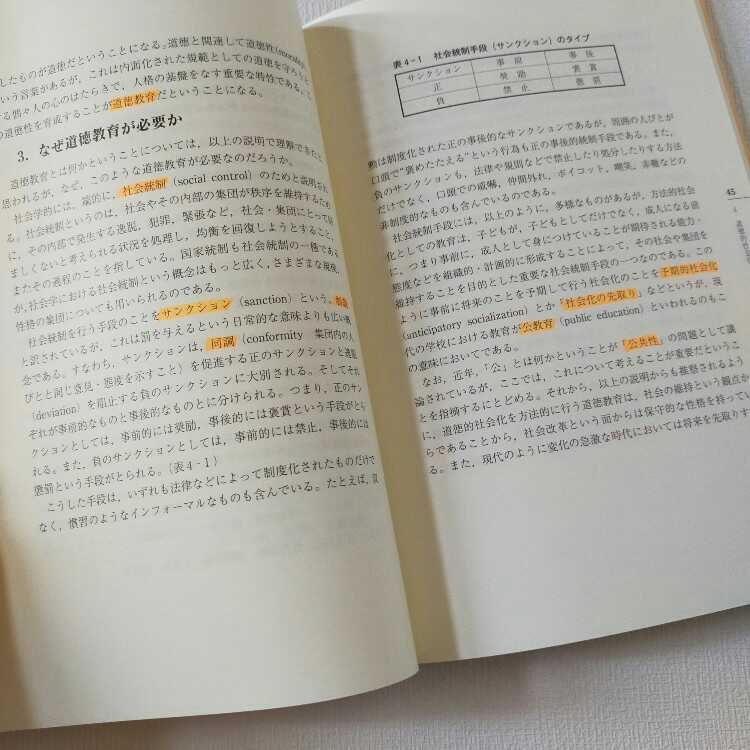 したものが道徳だということになる。道徳と関連して道徳性(morality)
いう言葉があるが，これは内面化された規範としての道徳を守ろうと
る個々人の心のはたらきで，人格の基盤をなす重要な特性である。
の道徳性を育成することが道徳教育だということになる。
3．なぜ道徳教育が必要か
道徳教育とは何かということについては，以上の説明で理解できた
思われるが，なぜ，このような道徳教育が必要なのだろうか。
社会学的には，端的に，社会統制（social control）のためと説明され
る。社会統制というのは，社会やその内部の集団が秩序を維持するため
に，その内部で発生する逸脱，犯罪，緊張など，社会・集団にとって
ましくないと考えられる状況を処理し，均衡を回復しようとすること，
またその過程のことを指している。国家統制も社会統制の一種である
が，社会学における社会統制という概念はもっと広く，さまざまな規模，
性格の集団についても用いられるのである。
社会統制を行う手段のことをサンクション（sanction）という。
と訳されているが，これは罰を与えるという日常的な意味よりも広い概
念である。すなわち，サンクションは，同調（conformity 集団内の人
びとと同じ意見・態度を示すこと）を促進する正のサンクションと逸脱
（deviation）を阻止する負のサンクションに大別される。そしてそれ
ぞれが事前的なものと事後的なものとに分けられる。つまり，正のサン
クションとしては，事前的には奨励，事後的には褒賞という手段がとら
れる。また，負のサンクションとしては，事前的には禁止，事後的には
懲罰という手段がとられる。（表4-1）
こうした手段は，いずれも法律などによって制度化されたものだけで
なく，慣習のようなインフォーマルなものも含んでいる。たとえば，
表4-1 社会統制手段（サンクション）のタイプ
サンクション 事前 事後
正 奨励 褒賞
負 禁止 懲罰
勲は制度化された正の事後的なサンクションであるが，周囲の人びとが
口頭で"褒めたたえる"という行為も正の事後的統制手段である。また，
負のサンクションも，法律や規則などで禁止したり処分したりする方法
だけでなく，口頭での威嚇，仲間外れ，ボイコット，嘲笑，非難などの
非制度的なものも含んでいるのである。
社会統制手段には，以上のように，多様なものがあるが，方法的社会
化としての教育は，子どもが，子どもとしてだけでなく，成人になる過
に，つまり事前に，成人として身につけていることが期待される能力・
態度などを組織的・計画的に形成することによって，その社会や集団を
維持することを目的とした重要な社会統制手段の一つなのである。この
ように事前に将来のことを予期して行う社会化のことを予期的社会化
(anticipatory socialization) とか「社会化の先取り」などというが，現
代の学校における教育が公教育（public education）といわれるのもこ
の意味においてである。
なお，近年，「公」とは何かということが「公共性」の問題として議
論されているが，ここでは，これについて考えることが重要だというこ
とを指摘するにとどめる。それから，以上の説明からも推察されるよう
に，道徳的社会化を方法的に行う道徳教育は，社会の維持という観点か
らであることから，社会改革という面からは保守的な性格を持ってい
る。また，現代のように変化の急激な時代においては将来を先取りす
45